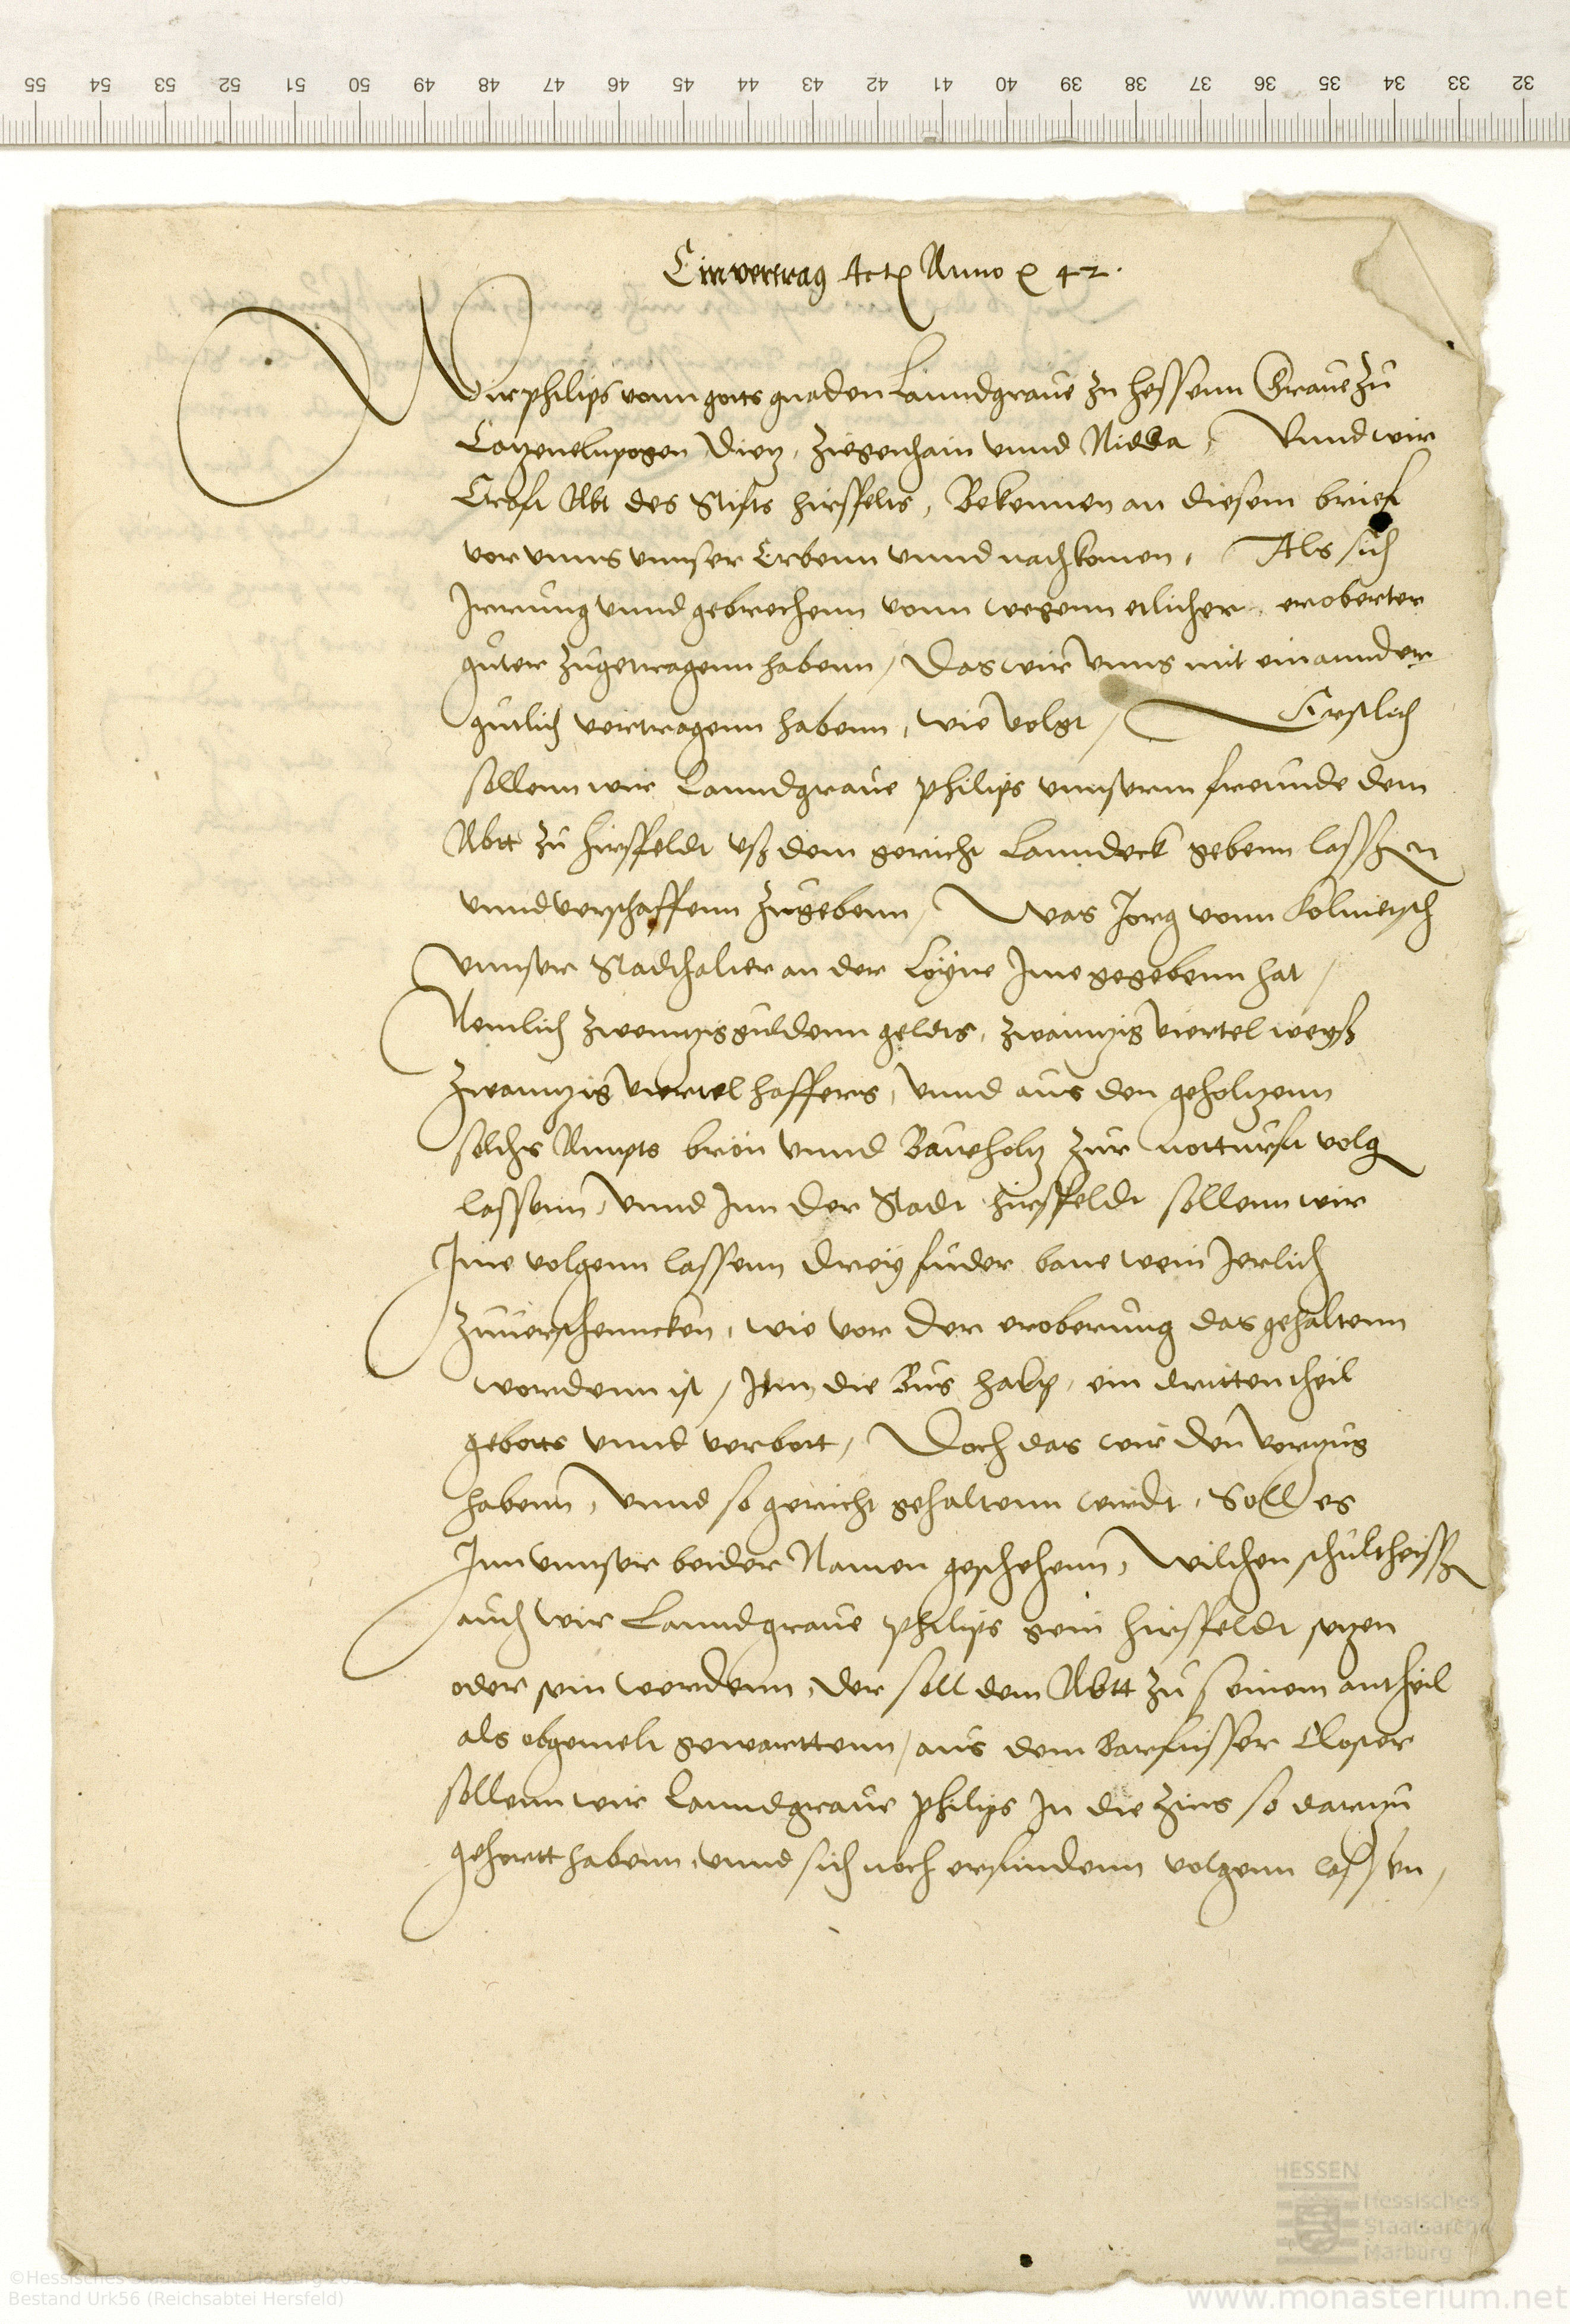 55 54 53 52 51 50 49 48 47 46 45 44 43 42 41 40 39 38 37 36 35 34 33 32
Ein vertrag Act Anno 42.
Wir philips vonn gots gnaden Lanndgraue zu hessenn Graue zu
Catzenelnpogen Dietz, Ziegenhain vnnd Nidda, Vnnd wir
Craft Abt des Stifts hirsfelts, Bekennen an diesem brief
vor vnns vnnser Erbenn vnnd nachkomen, Als sich
Irrung vnnd gebrechenn vonn wegenn etlicher eroberter
guter zugetragenn habenn, Das wir vnns mit einannder
gutlich vertragenn habenn, wie volgt, Erstlich
sollenn wir Lanndgraue philips vnnserm freunde dem
Abtt zu hirsfeldt vß dem gericht Lanndeck gebenn lassen
vnnd verschaffenn zugebenn, Was Jorg vonn Kolmetsch
vnnser Stadthalter an der Loyne Ime gegebenn hat,
Nemlich zwenntzig guldenn geldts, zwanntzig viertel weyß
zwanntzig viertel haffers, vnnd aus den geholtzenn
solchs Ampts vnnd Baueholtz zur notturft volg
lassenn, vnnd Inn der Stadt hirsfeldt sollenn wir
Ime volgenn lassenn drey fuder bane wein Jerlich
zuuerschenncken, wie vor der eroberung das gehaltenn
wordenn ist, Item die Bus halb, ein dritten theil
gebotts vnnd verbott, Doch das wir den vorzug
habenn, vnnd so gericht gehaltenn wirdt, Soll es
Inn vnnser beider Namen geschehenn, Wilchen schultheissen
auch wir Lanndgraue philips gein hirsfeldt setzen
oder sein werdenn, der soll dem Abtt zu seinem antheil
als obgemelt gewarttenn, aus dem barfusser Closter
sollenn wir Lanndgraue philips In die zins so dartzu
gehortt habenn, vnnd sich noch erfindenn volgenn lassen,
HESSEN
Hessisches
Staatsarchiv
Marburg
©Hessisches Staatsarchiv Marburg
Bestand Urk56 (Reichsabtei Hersfeld)
www.monasterium.net